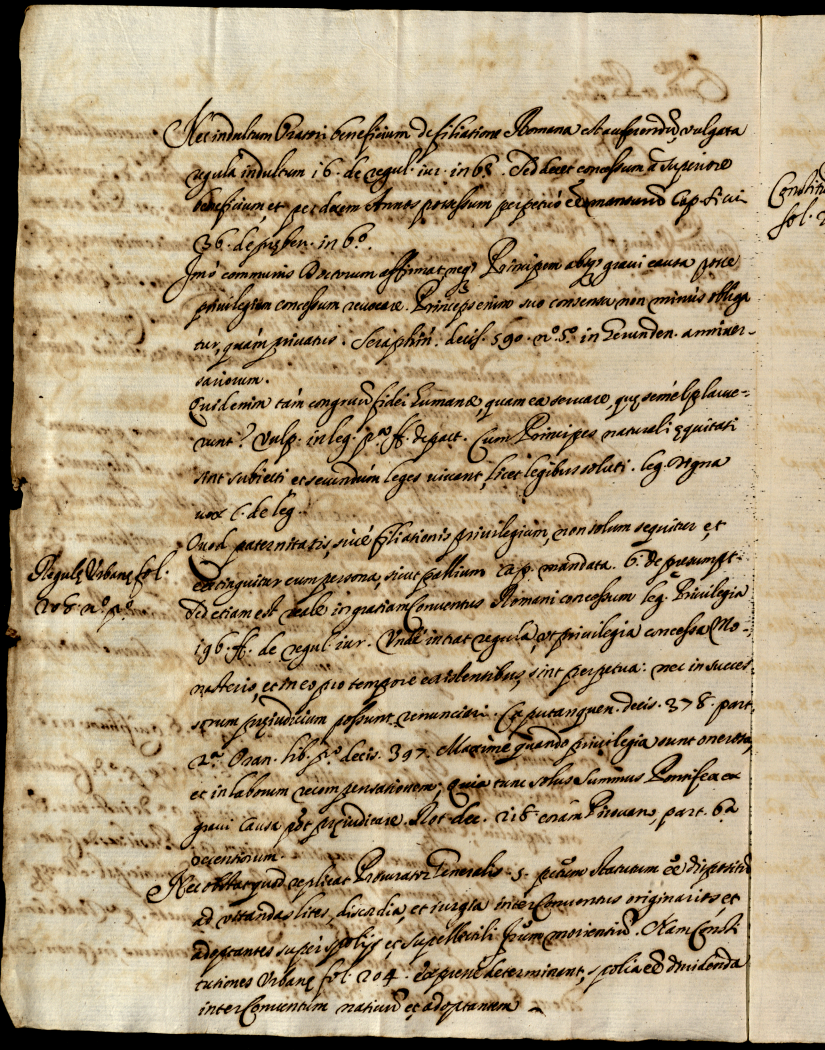 Nec indultum Oratori beneficium de filiatione Romana est auferendũ, vulgata
regula indultum 16. de regul. iur. in 6º. Sed decet concessum à Superiore
beneficium, et per decem Annos possessum perpetuó eẽ mansurũ Cap. si cui
36. de preben. in 6º.
Imò communis Doctorum affirmat, neqz Principem absqz graui causa posse
priuilegium concessum reuocare. Princeps enim suo consensu non minus obliga
tur, quàm priuatus. Seraphin. decis. 590. nº. 5º. in Gerunden. anniuer-
sariorum.
Quid enim tàm congruũ fidei humanæ, quam ea seruare, quę semèl placue-
runt? Vulp. in leg. pª. ff. de pact. Cum Principes naturali ęquitati
sint subiecti et secundùm leges viuant, licet legibus soluti. leg. digna
vox C. de leg.
Quod paternitatis, siuè filiationis priuilegium, non solum sequitur et
extinguitur cum persona, sicut pallium cap. mandata. 6. de presumpt.
sed etiam est reale in gratiam Conuentus Romani concessum leg. Priuilegia
196. ff. de regul. iur. Vndè intrat regula, vt priuilegia concessa Mo-
nasterio, et in eo pro tempore existentibus, sint perpetua: nec in succes
sorum pręiudicium possunt renunciari. Caputaquen. decis. 378. part.
2ª. Oran. lib. pº. decis. 397. Maximè quando priuilegia sunt onerosa,
et in laborum recompensationem; Quia tunc solus Summus Pontifex ex
graui causa põt pręiudicare. Rot. dec. 218. coràm Pirouano, part. 6.ª
recentiorum.
Nec obstat quod replicat Procurator Generalis. 5. pctum Statutum eẽ dispositũ
ad vitandas lites, discordia, et iurgia inter Conuentus originarios, et
adoptantes super spolijs et supellectili Frum morientiũ. Nam Consti
tutiones Vrbanę fol. 204. expresse determinant, spolia eẽ diuidenda
inter Conuentum natiuũ et adoptantem
Regulę Vrbanę fol.
208. nº. pº.
Constitu
fol. 2